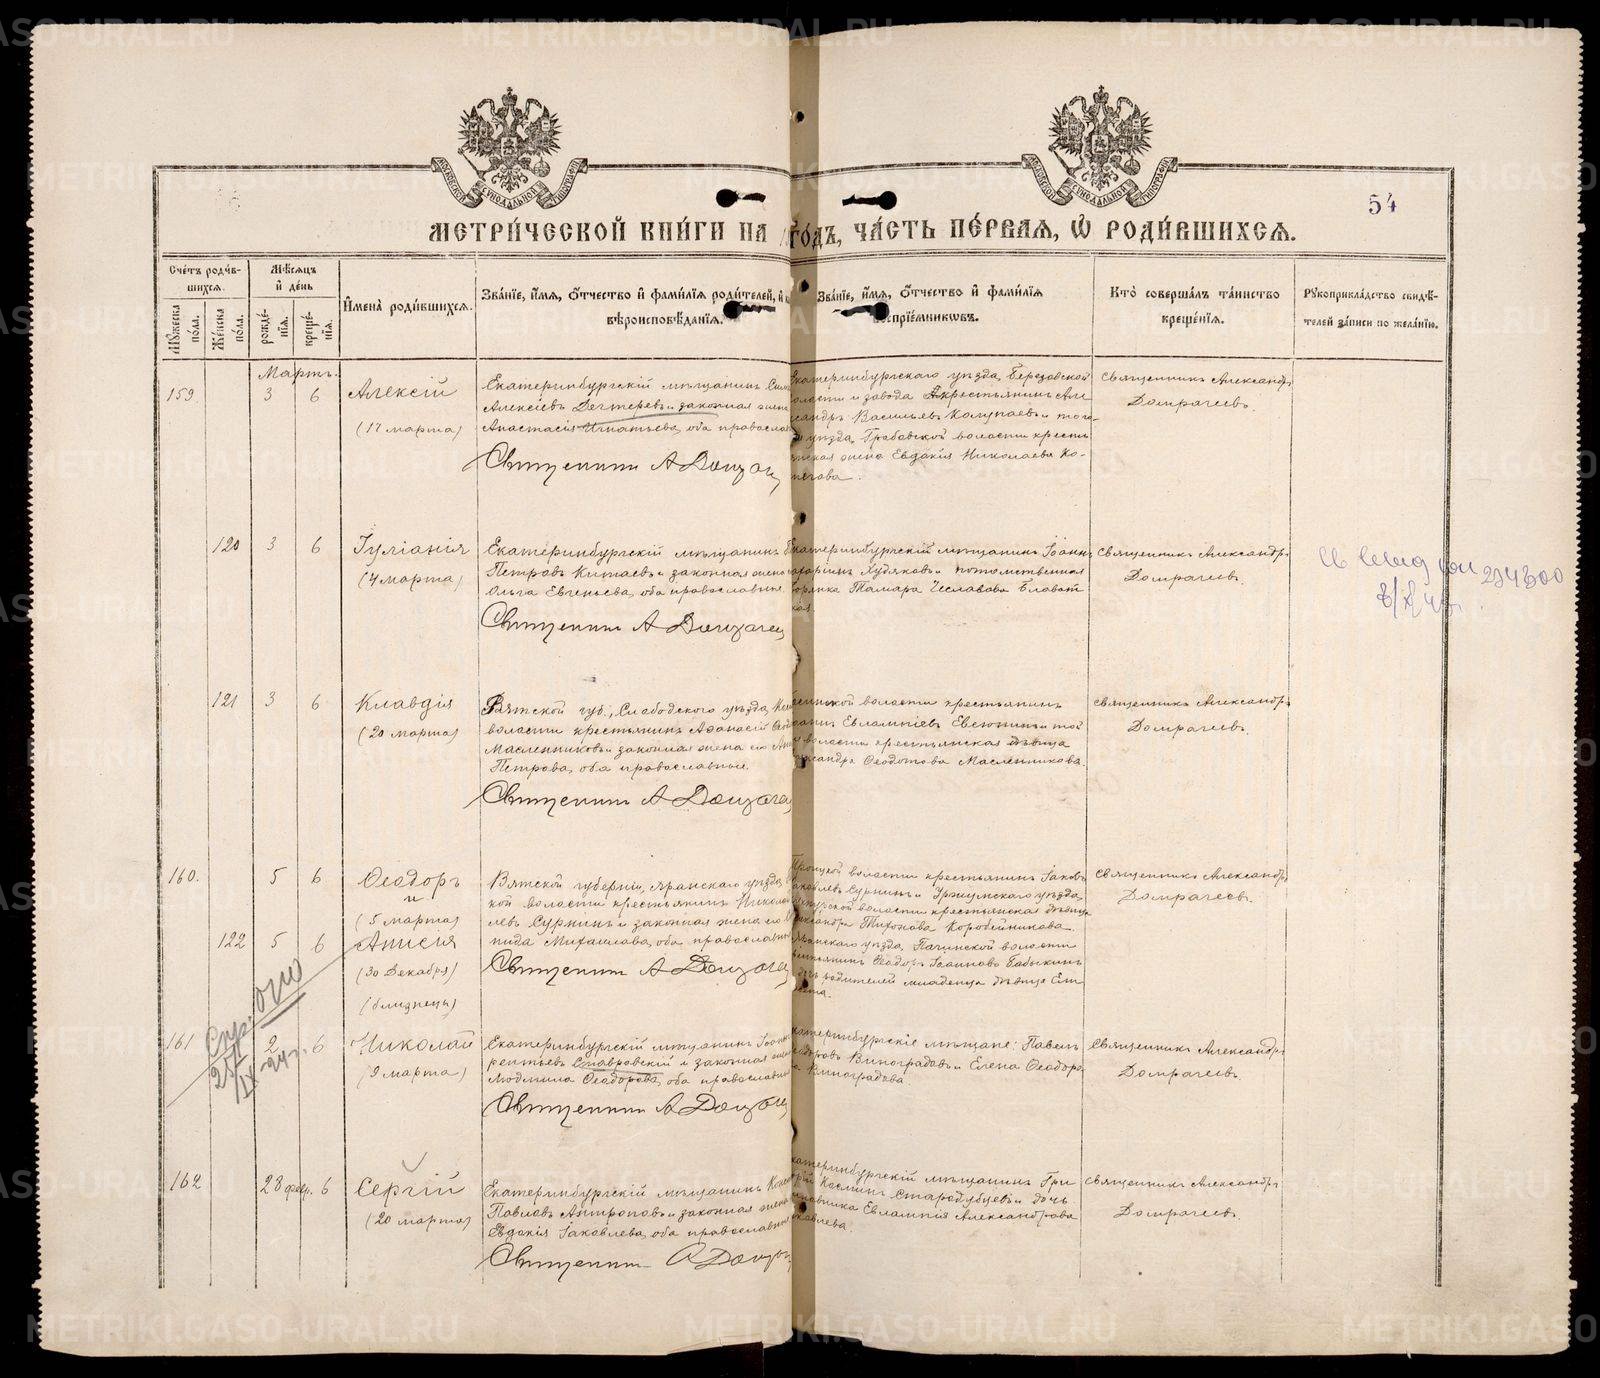 METRIKI.GASO-URAL.RU
54
МЕТРИ́ЧЕСКОЙ КНИ́ГИ НА ГО́ДЪ, ЧА́СТЬ ПЕ́РВАЯ, Ѡ РОДИ́ВШИХСЯ.
Сче́тъ роди́вшихся.
Мꙋ́жеска по́ла.
Же́нска по́ла.
Мѣ́сяцъ и҆ де́нь
рожде́нїя.
креще́нїя.
И҆мена̀ роди́вшихся.
Зва́нїе, и҆́мя, ѻ҆́тчество и҆ фами́лїя роди́телей, и҆
вѣроисповѣ́данїя.
Зва́нїе, и҆́мя, ѻ҆́тчество и҆ фами́лїя
воспрїе́мникѡвъ.
Кто̀ соверша́лъ та́инство
креще́нїя.
Рꙋкоприкла́дство свидѣ́-
телей за́писи по жела́нїю.
Мартъ.
159.
3
6
Алексій
(17 марта)
Екатеринбургскій мѣщанинъ
Алексіевъ Дегтеревъ и законная жена
Анастасія Игнатьева, оба православ
Священникъ А Дом
Екатеринбургскаго уѣзда, Березовской
волости и завода крестьянинъ Але
ксандръ Васильевъ Колупаевъ и того-
уѣзда, Грабовской волости кресть
янская жена Евдокія Николаева Ко-
Священникъ Александръ
Домрачевъ.
120
3
6
Іуліанія
(4 марта)
Екатеринбургскій мѣщанинъ
Петровъ Китаевъ и законная жена
Ольга Евгеньева, оба православные
Священникъ А Домрачев
Екатеринбургскій мѣщанинъ Іоанн
Худяковъ и потомственная
дворянка Тамара Чеславова Блават
ская
Священникъ Александръ
Домрачевъ.
234300
121
3
6
Клавдія
(20 марта)
Вятской губ., Слободского уѣзда,
волости крестьянинъ Аѳанасій
Масленниковъ и законная жена его
Петрова, оба православные.
Священникъ А Домрачев
волости крестьянинъ
Евлампіевъ Евсюнинъ и той
волости крестьянская дѣвица
Александра Ѳеодотова Масленникова.
Священникъ Александръ
Домрачевъ.
160.
5
6
Ѳеодоръ
и
(5 марта)
122
5
6
Анисія
(30 декабря)
(близнецы)
Вятской губерніи, Яранскаго уѣзда,
кой волости крестьянинъ Никола
евъ Суринъ и законная жена его
Михаилова, оба православн
Священникъ А Домрачев
Троицкой волости крестьянинъ Іаковъ
Іаковлевъ Суринъ и Уржумскаго уѣзда,
волости крестьянская дѣвица
Александра Тихонова Коробейникова.
уѣзда, Пачинской волости
крестьянинъ Ѳеодоръ Іоанновъ Бабыкинъ
родителей младенца дѣвица
Священникъ Александръ
Домрачевъ.
161
2
6
Николай
(9 марта)
Екатеринбургскій мѣщанинъ
рентьевъ Ставровскій и законная жена
Людмила Ѳеодорова, оба православн
Священникъ А Дом
Екатеринбургскіе мѣщане: Павелъ
Ѳеодоровъ Виноградовъ и Елена Ѳеодоро
ва Виноградова
Священникъ Александръ
Домрачевъ.
162
28 февр.
6
Сергій
(20 марта)
Екатеринбургскій мѣщанинъ
Павловъ Антроповъ и законная жена
Евдокія Іаковлева, оба православн
Священникъ А Дом
Екатеринбургскій мѣщанинъ Гри
горій Косминъ Стародубцевъ и дочь
чиновника Евлампія Александрова
Яковлева.
Священникъ Александръ
Домрачевъ.